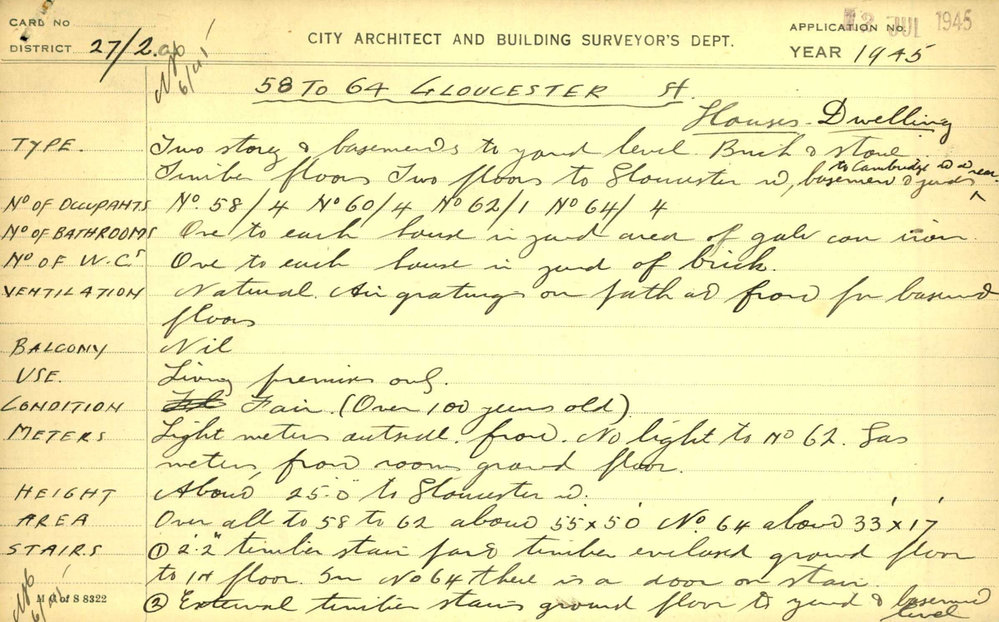 CARD No
DISTRICT 27/2
CITY ARCHITECT AND BUILDING SURVEYOR'S DEPT.
APPLICATION No.
12 JUL 1945
YEAR 1945
58 TO 64 GLOUCESTER St.
Houses - Dwelling
TYPE. Two storey & basements to yard level. Brick & stone
to Cambridge St rear
Timber floors Two floors to Gloucester St, basement & yards
No OF OCCUPANTS No. 58/4 No 60/4 No 62/1 No 64/4
No OF BATHROOMS One to each house in yard area of galv corr iron.
No OF W.Cs One to each house in yard of brick.
VENTILATION Natural. Air gratings on path at front for basement
floors
BALCONY Nil
USE. Living premises only.
CONDITION Fair. (Over 100 years old)
METERS Light meters outside front. No light to No 62. Gas
meters, front rooms ground floor.
HEIGHT About 25'-0" to Gloucester St.
AREA Over all to 58 to 62 about 55' x 50' No. 64 about 33' x 17'
STAIRS ① 2'2" timber stair timber enclosed ground floor
to 1st floor. In No 64 there is a door on stair.
② External timber stairs ground floor to yard & basement
level
M C of S 8322